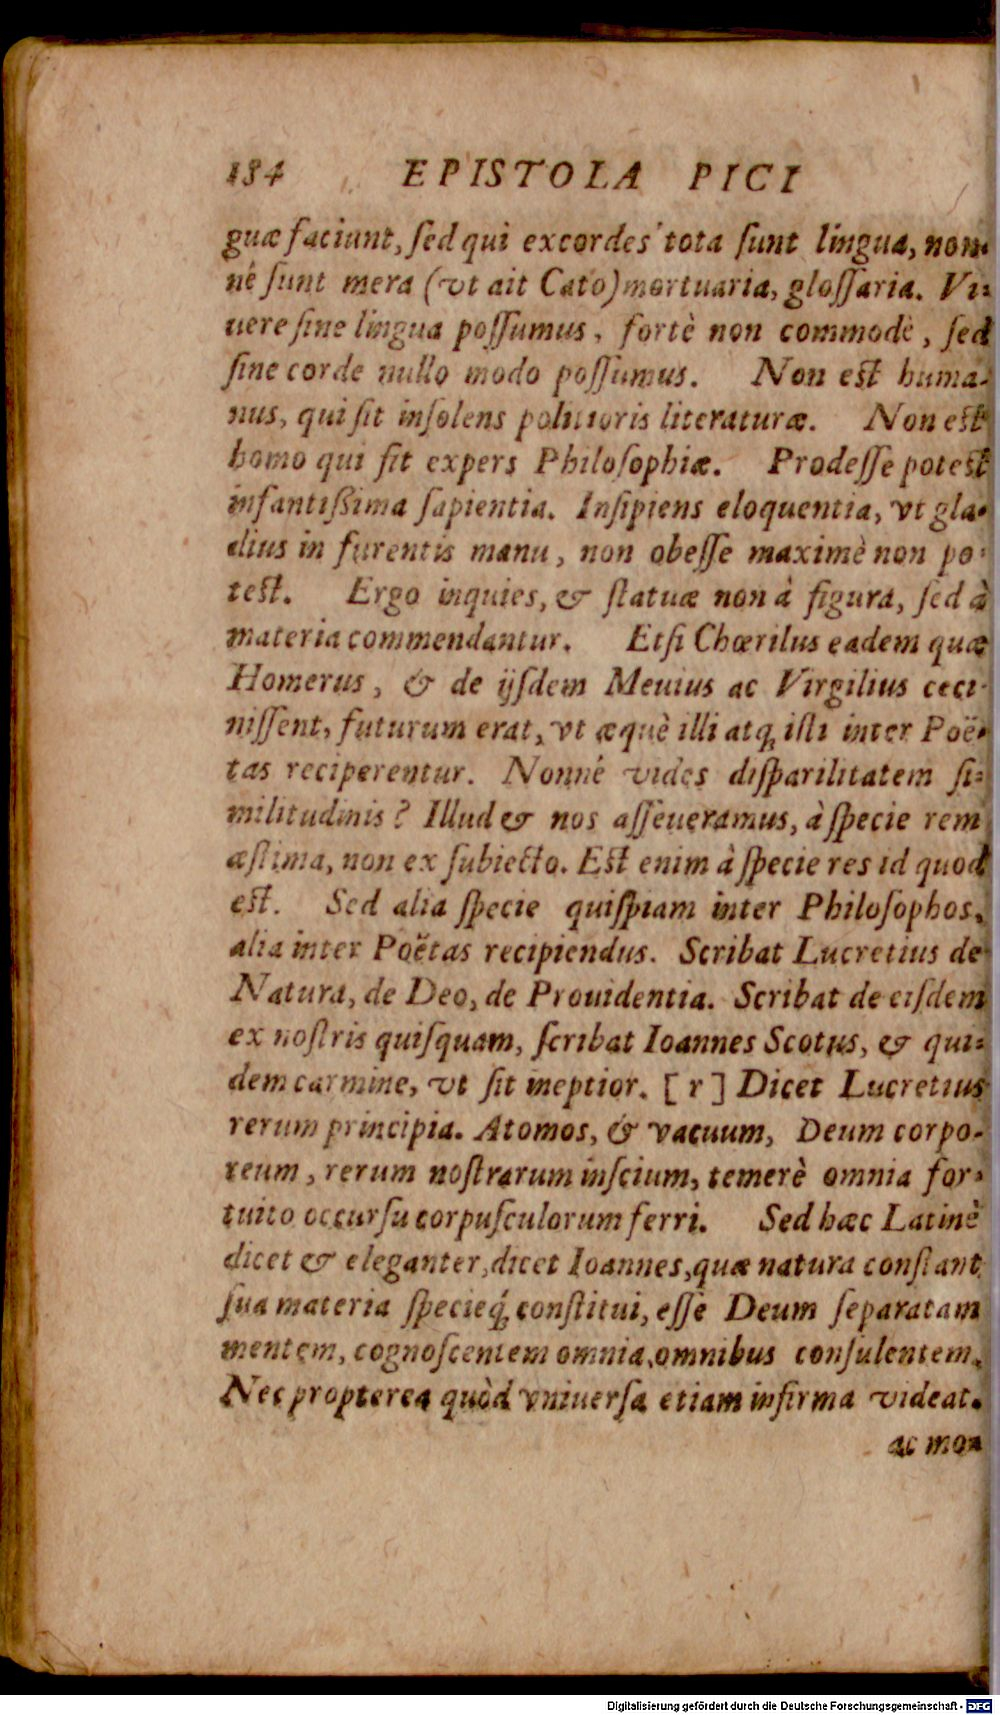 184 EPISTOLA PICI
guæ faciunt, ſed qui excordes tota ſunt lingua, non-
né ſunt mera (vt ait Cato) mortuaria, gloſſaria. Vi-
uere ſine lingua poſſumus, fortè non commodè, ſed
ſine corde nullo modo poſſumus. Non est huma-
nus, qui ſit inſolens politioris literaturæ. Non est
homo qui ſit expers Philoſophiæ. Prodeſſe potest
infantißima ſapientia. Inſipiens eloquentia, vt gla-
dius in furentis manu, non obeſſe maximè non po-
test. Ergo inquies, & ſtatuæ non à figura, ſed à
materia commendantur. Etſi Chœrilus eadem quæ
Homerus, & de ijſdem Meuius ac Virgilius ceci-
niſſent, futurum erat, vt æquè illi atq́; iſti inter Poë-
tas reciperentur. Nonné vides diſparilitatem ſi-
militudinis? Illud & nos aſſeueramus, à ſpecie rem
æſtima, non ex ſubiecto. Est enim à ſpecie res id quod
est. Sed alia ſpecie quiſpiam inter Philoſophos,
alia inter Poëtas recipiendus. Scribat Lucretius de
Natura, de Deo, de Prouidentia. Scribat de eiſdem
ex noſtris quiſquam, ſcribat Ioannes Scotus, & qui-
dem carmine, vt ſit ineptior. [ r ] Dicet Lucretius
rerum principia. Atomos, & vacuum, Deum corpo-
reum, rerum noſtrarum inſcium, temerè omnia for-
tuito occurſu corpuſculorum ferri. Sed hæc Latinè
dicet & eleganter, dicet Ioannes, quæ natura conſtant
ſua materia ſpecieq́; conſtitui, eſſe Deum ſeparatam
mentem, cognoſcentem omnia, omnibus conſulentem,
Nec propterea quòd vniuerſa etiam infirma videat.
ac mon
Digitalisierung gefördert durch die Deutsche Forschungsgemeinschaft - DFG